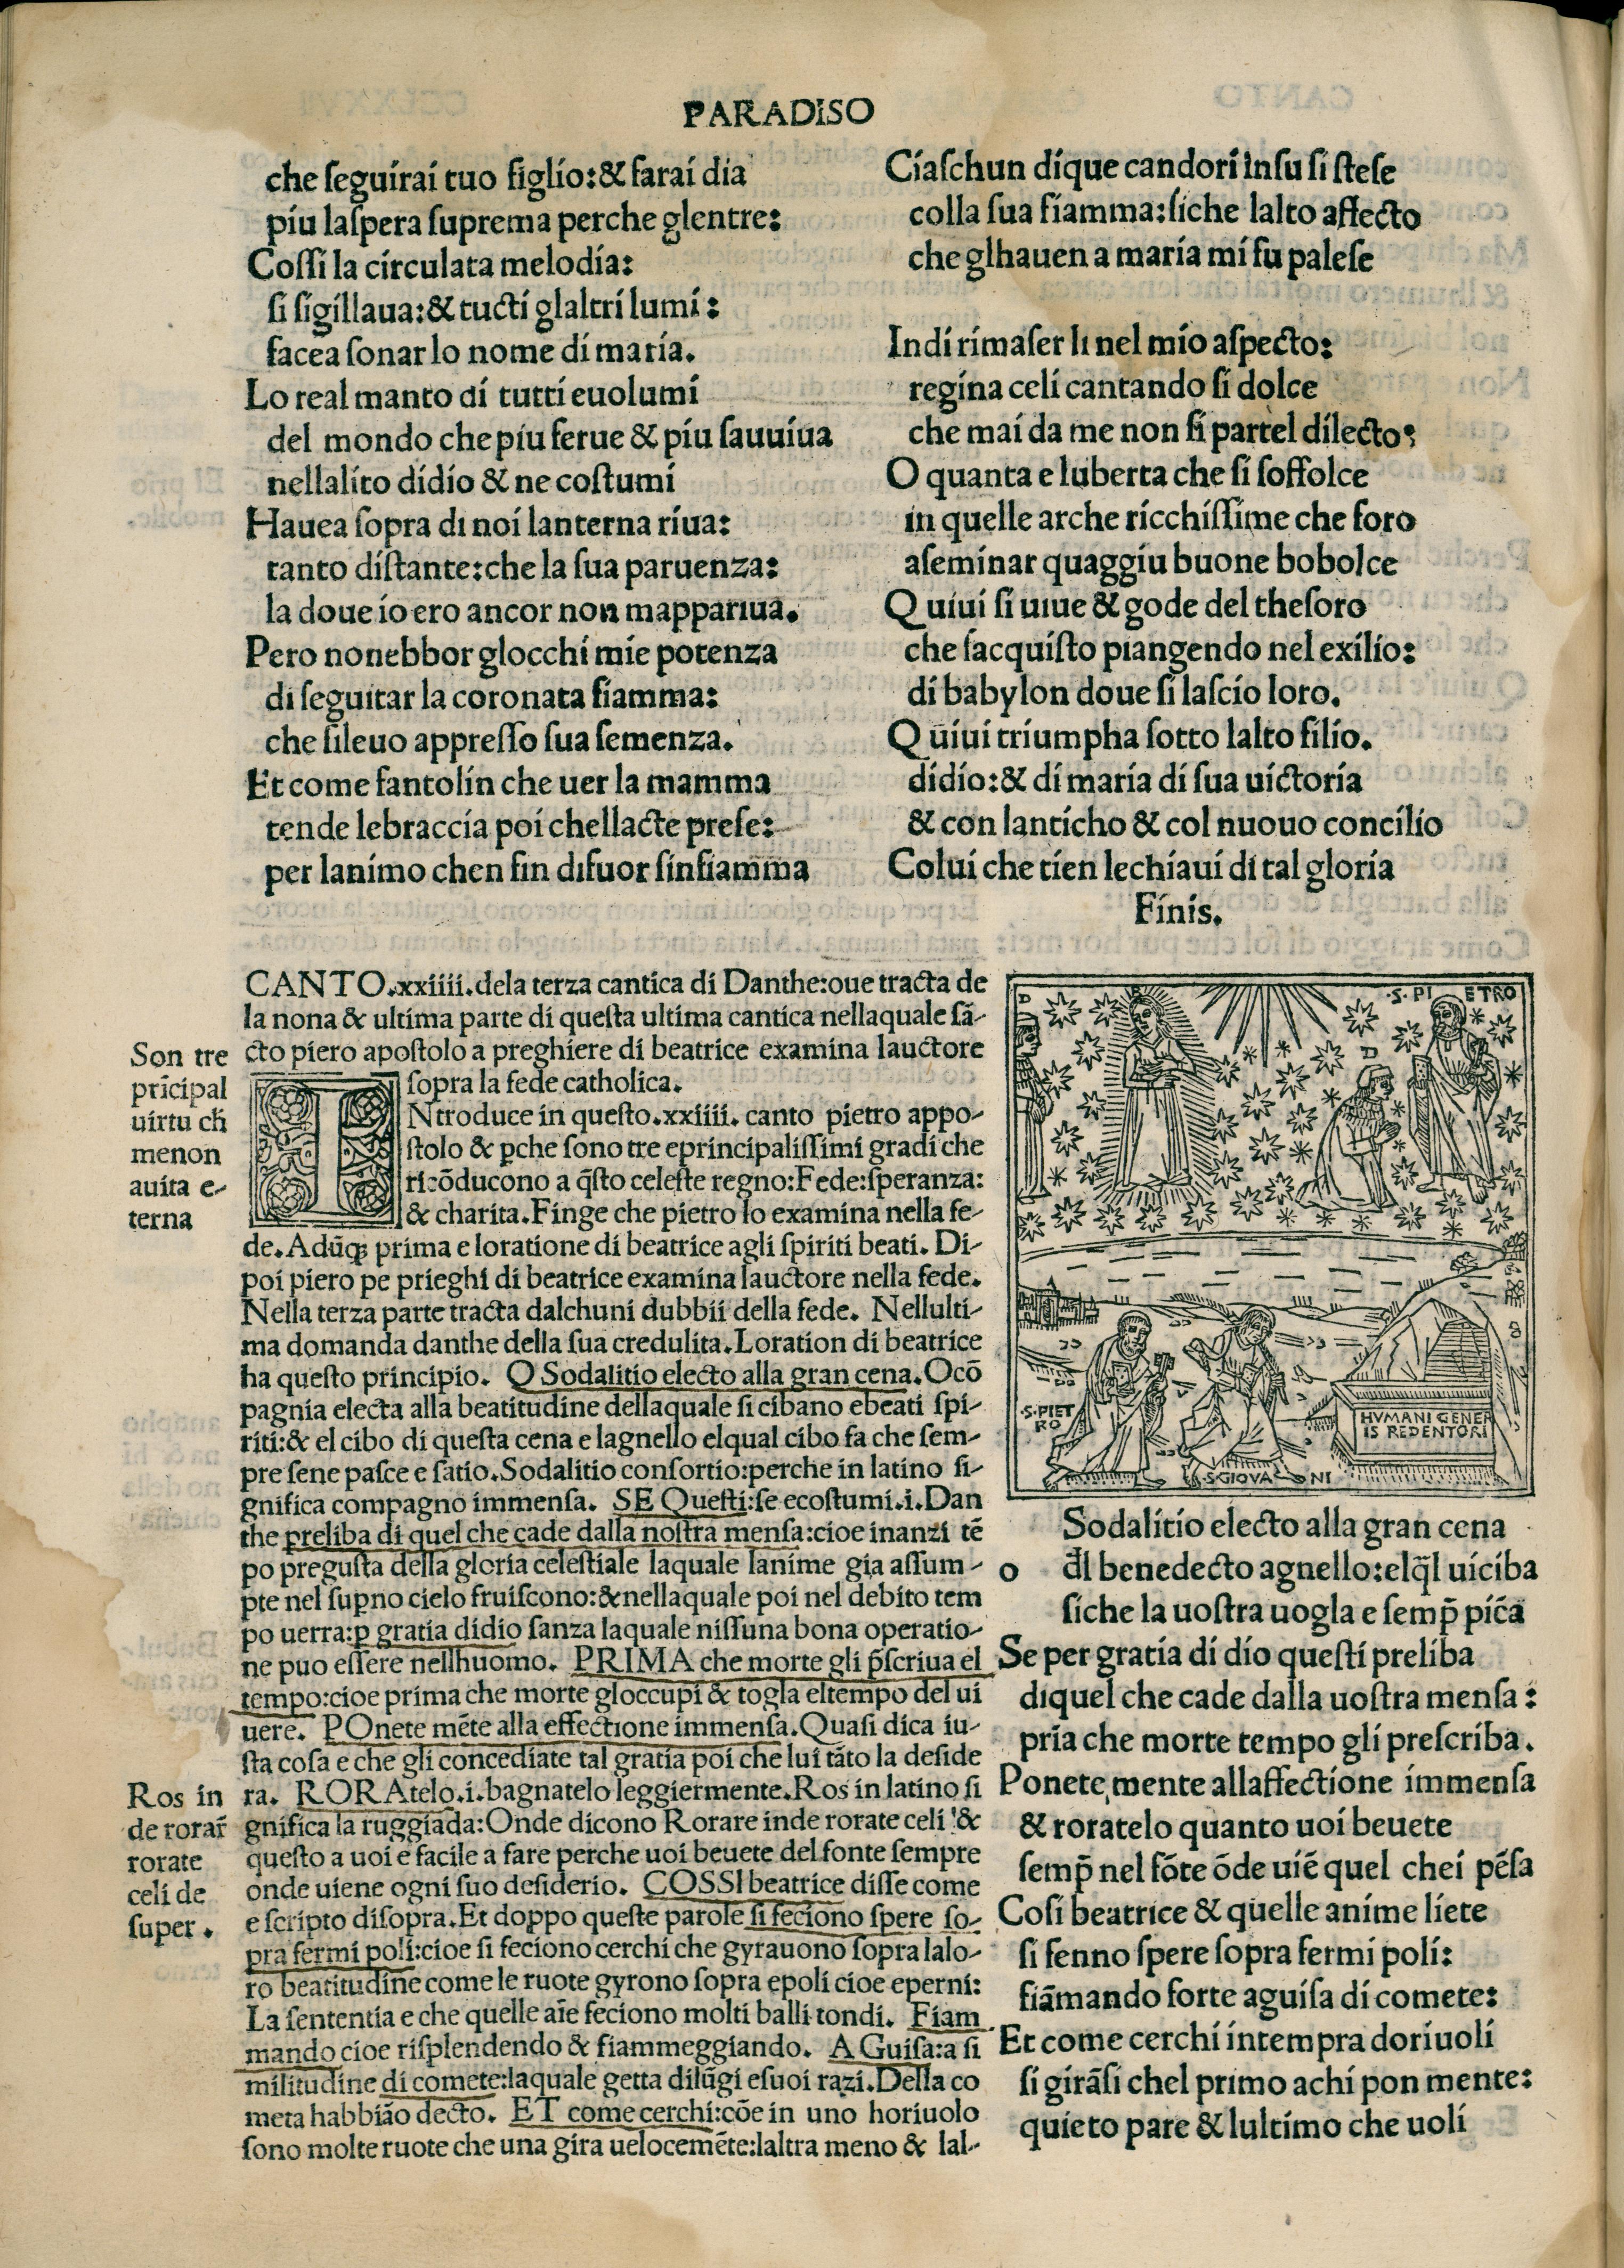 PARADISO
che ſeguirai tuo figlio:& farai dia
piu laſpera ſuprema perche glentre:
Coſſi la circulata melodia:
ſi ſigillaua:& tucti glaltri lumi:
facea ſonar lo nome di maria.
Lo real manto di tutti euolumi
del mondo che piu ferue & piu ſauuiua
nellalito didio & ne coſtumi
Hauea ſopra di noi lanterna riua:
tanto diſtante:che la ſua paruenza:
la doue io ero ancor non mappariua.
Pero nonebbor glocchi mie potenza
di ſeguitar la coronata fiamma:
che ſileuo appreſſo ſua ſemenza.
Et come fantolin che uer la mamma
tende lebraccia poi chellacte preſe:
per lanimo chen fin difuor ſinfiamma
Ciaſchun dique candori inſu ſi ſteſe
colla ſua fiamma:ſiche lalto affecto
che glhauen a maria mi fu paleſe
Indi rimaſer li nel mio aſpecto:
regina celi cantando ſi dolce
che mai da me non ſi partel dilecto:
O quanta e luberta che ſi ſoffolce
in quelle arche ricchiſſime che foro
aſeminar quaggiu buone bobolce
Quiui ſi uiue & gode del theſoro
che ſacquiſto piangendo nel exilio:
di babylon doue ſi laſcio loro.
Q ūiui triumpha ſotto lalto filio.
didio:& di maria di ſua uictoria
& con lanticho & col nuouo concilio
Colui che tien lechiaui di tal gloria
Finis.
CANTO.xxiiii.dela terza cantica di Danthe:oue tracta de
la nona & ultima parte di queſta ultima cantica nellaquale ſā-
cto piero apoſtolo a preghiere di beatrice examina lauctore
ſopra la fede catholica.
Son tre
prīcipal
uirtu ch̄
menon
auita e-
terna
INtroduce in queſto.xxiiii. canto pietro appo-
ſtolo & ꝑche ſono tre eprincipaliſſimi gradi che
ricōducono a q̄ſto celeſte regno:Fede:ſperanza:
& charita.Finge che pietro lo examina nella fe-
de.Adūqꝫ prima e loratione di beatrice agli ſpiriti beati. Di-
poi piero pe prieghi di beatrice examina lauctore nella fede.
Nella terza parte tracta dalchuni dubbii della fede. Nellulti-
ma domanda danthe della ſua credulita.Loration di beatrice
ha queſto principio. O Sodalitio electo alla gran cena.Ocō
pagnia electa alla beatitudine dellaquale ſi cibano ebeati ſpi-
riti:& el cibo di queſta cena e lagnello elqual cibo fa che ſem-
pre ſene paſce e ſatio.Sodalitio conſortio:perche in latino ſi-
gnifica compagno immenſa. SE Queſti:ſe ecoſtumi.i.Dan
the preliba di quel che cade dalla noſtra menſa:cioe inanzi tē
po preguſta della gloria celeſtiale laquale lanime gia aſſum-
pte nel ſuꝑno cielo fruiſcono:&nellaquale poi nel debito tem
po uerra:ꝑ gratia didio ſanza laquale niſſuna bona operatio-
ne puo eſſere nellhuomo. PRIMA che morte gli p̄ſcriua el
tempo:cioe prima che morte gloccupi & togla eltempo del ui
uere. POnete mēte alla effectione immenſa.Quaſi dica iu-
ſta coſa e che gli concediate tal gratia poi che lui tāto la deſide
Ros in
de rorar̄
rorate
celi de
ſuper.
ra. RORAtelo.i.bagnatelo leggiermente.Ros in latino ſi
gnifica la ruggiada:Onde dicono Rorare inde rorate celi:&
queſto a uoi e facile a fare perche uoi beuete del fonte ſempre
onde uiene ogni ſuo deſiderio. COSSI beatrice diſſe come
e ſcripto diſopra.Et doppo queſte parole ſi feciono ſpere ſo-
pra fermi poli:cioe ſi feciono cerchi che gyrauono ſopra lalo-
ro beatitudine come le ruote gyrono ſopra epoli cioe eperni:
La ſententia e che quelle aīe feciono molti balli tondi. Fiam
mando cioe riſplendendo & fiammeggiando. A Guiſa:a ſi
militudine di comete:laquale getta dilūgi eſuoi razi.Della co
meta habbiāo decto. ET come cerchi:cōe in uno horiuolo
ſono molte ruote che una gira uelocemēte:laltra meno & lal-
D
B
D
.S.PIETRO
.S.PIETRO
S.GIOVANI
HVMANI GENERIS REDENTORI
Sodalitio electo alla gran cena
o dl̄ benedecto agnello:elq̄l uiciba
ſiche la uoſtra uogla e ſemp̄ pic̄a
Se per gratia di dio queſti preliba
diquel che cade dalla uoſtra menſa:
pria che morte tempo gli preſcriba.
Ponete mente allaffectione immenſa
& roratelo quanto uoi beuete
ſemp̄ nel fōte ōde uiē quel chei pēſa
Coſi beatrice & quelle anime liete
ſi fenno ſpere ſopra fermi poli:
fiāmando forte aguiſa di comete:
Et come cerchi intempra doriuoli
ſi girāſi chel primo achi pon mente:
quieto pare & lultimo che uoli